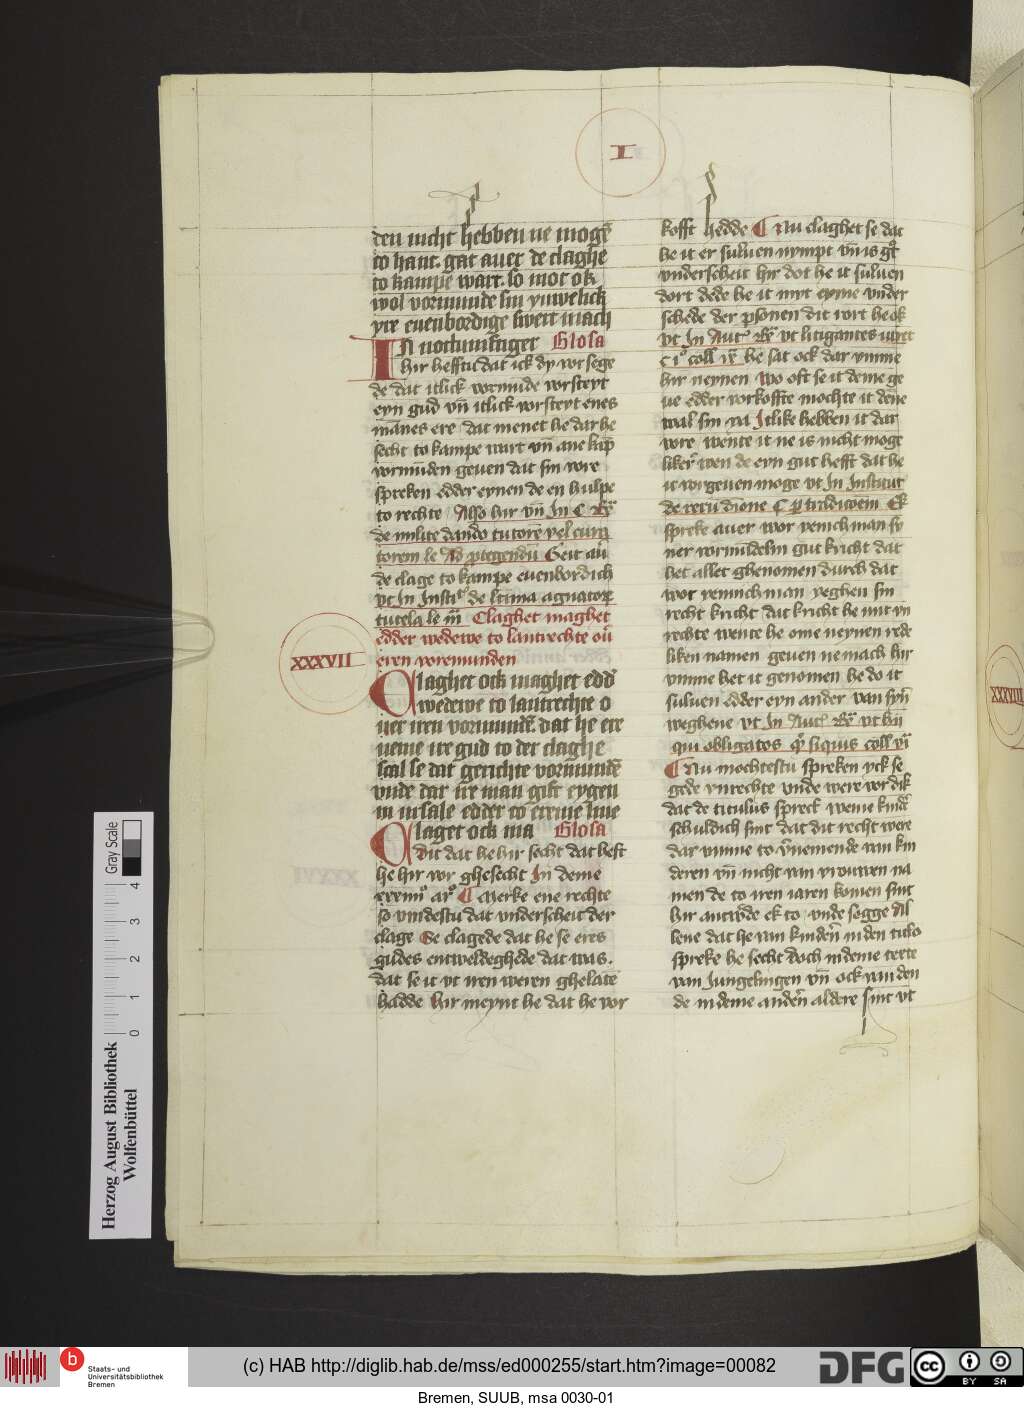 I
den nicht hebben ne moge
to hant. gat auer de claghe
to kampe wart. so mot ok
wol vormunde sin ynwelick
yre euenbordige swert mach
In nothnuftiger Glosa
hir hefftu dat ick dy vor sege
de dat itlick vormude vorsteyt
eyn gud vn̄ itlick vorsteyt enes
mānes ere dat menet he dar he
secht to kampe wart vn̄ ane kāp
vormūden geuen dat sin vore
spreken edder eynen de en hulpe
to rechte Also hir vn̄ In C
de milite dando tutorē vel cura
torem le Ad ptegendū Geit au
de clage to kampe euenbordich
vt In Insti de ltima agnator
tutela le Claghet maghet
edder wedewe to lantrechte ou
eren voremunden
XXXVII
Claghet ock maghet edd
wedewe to lantrechte o
uer iren vormundē dat he ere
neme ire gud to der claghe
scal se dat gerichte vormundē
vnde dar ire man gift eygen
in insale edder to ereme liue
Claget ock ma Glosa
dit dat he hir secht dat heft
he hir vor ghesecht In deme
ar Merke ene rechte
so vindestu dat vnderscheit der
clage Se clagede dat he se eres
gudes entweldeghede dat was.
dat se it vt iren weren ghelatē
hadde hir meynt he dat he vor
kofft hedde Nu claghet se dat
he it er suluen nympt vn̄ is gt
vnderscheit hir dot he it suluen
dort dede he it myt eyme vnder
schede der psonen dit wrt he ok
vt In Aut vt litigantes iuret
coll he sat ock dar vmme
hir neynen wo oft se it deme ge
ue edder vorkoffte mochte it deme
wal sin na Itlike hebben it dar
vore wente it ne is nicht moge
liker wen de eyn gut hefft dat he
it vorgeuen moge vt In Institut
de reru dīone Ek
spreke auer wor yenich man sy
ner vormūdesin gut kricht dat
het allet ghenomen durch dat
wor yennich man yeghen sin
recht kricht dat kricht he mit vn
rechte wente he ome neynen rede
liken namen geuen ne mach hir
vmme het it genomen he do it
suluen edder eyn ander van syn
weghene vt In Aut vt hii
qui obligatos siquis coll
Nu mochtestu spreken yck se
gede vnrechte vnde were vor dik
dat de titulus sprect wenne kinde
schuldich sint dat dit recht were
dar vmme to vnemende van kin
deren vn̄ nicht van vrouwen na
men de to iren iaren komen sint
hir antwrde ek to vnde segge Al
lene dat he van kinden in den titlo
spreke he secht doch in deme texte
van Jungelingen vn̄ ock van den
de in deme anden aldere sint vt
XXXVIII
Herzog August Bibliothek
Wolfenbüttel
0 1 2 3 4
Gray Scale
b
Staats- und
Universitätsbibliothek
Bremen
(c) HAB http://diglib.hab.de/mss/ed000255/start.htm?image=00082
DFG
cc BY SA
Bremen, SUUB, msa 0030-01